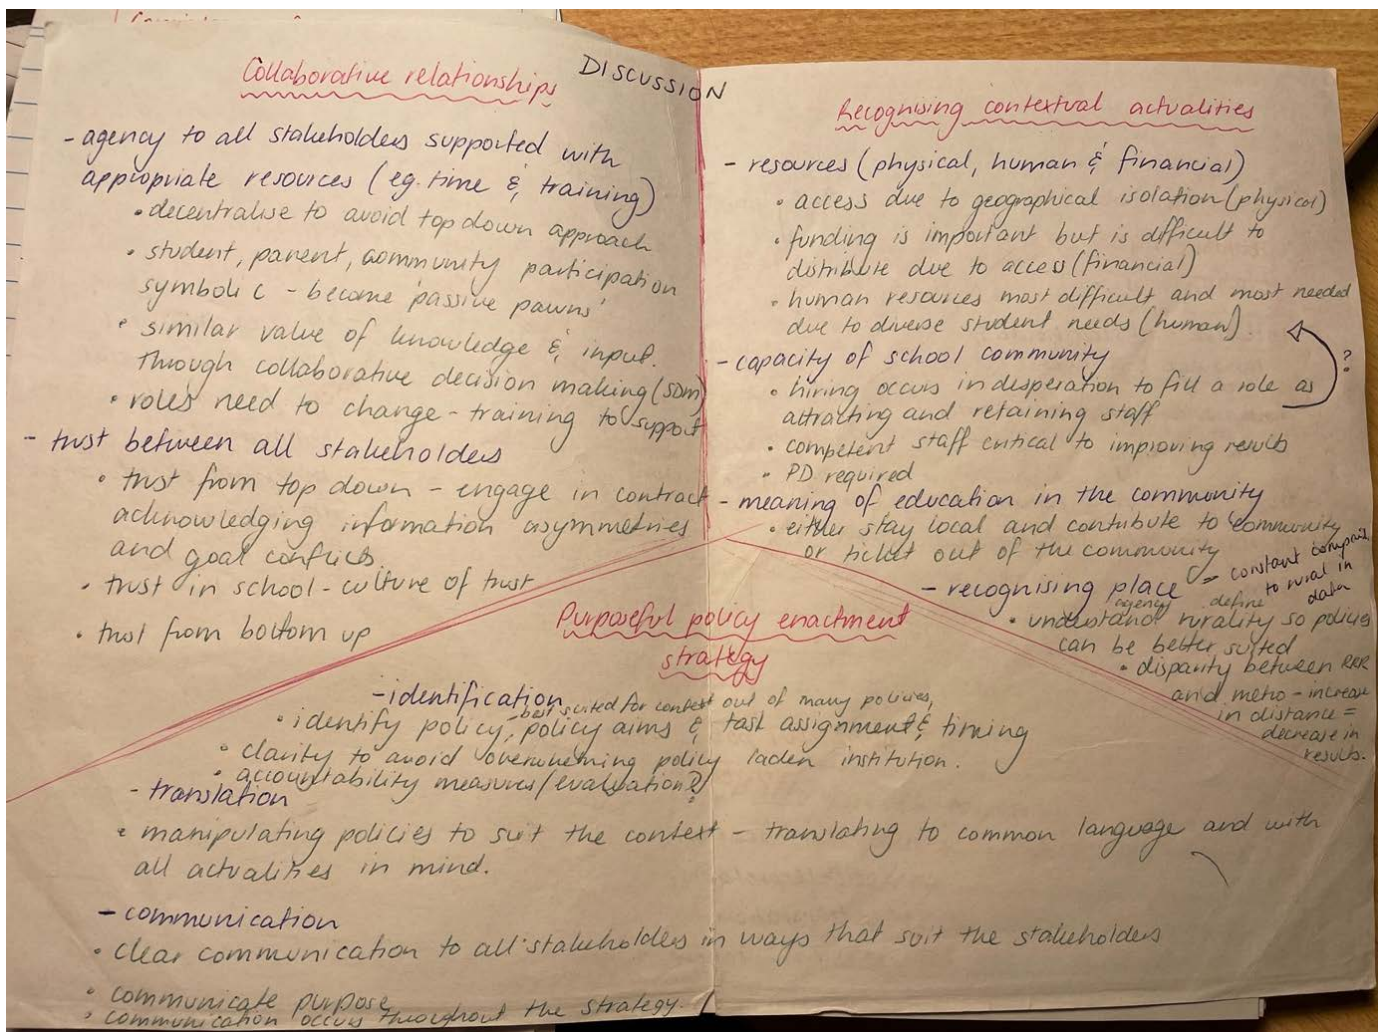 DISCUSSION
Collaborative relationships
- agency to all stakeholders supported with
appropriate resources (eg. time & training)
• decentralise to avoid top down approach
• student, parent, community participation
symbolic - become 'passive pawns'
• similar value of knowledge & input
through collaborative decision making (SDM)
• roles need to change - training to support
- trust between all stakeholders
• trust from top down - engage in contract
acknowledging information asymmetries
and goal conflicts
• trust in school - culture of trust
• trust from bottom up
Recognising contextual actualities
- resources (physical, human & financial)
• access due to geographical isolation (physical)
• funding is important but is difficult to
distribute due to access (financial)
• human resources most difficult and most needed
due to diverse student needs (human).
?
- capacity of school community
• hiring occurs in desperation to fill a role as
attracting and retaining staff
• competent staff critical to improving results
• PD required
- meaning of education in the community
• either stay local and contribute to community
or ticket out of the community
- recognising place = constant
to rural in
data
agency define
• understand rurality so policies
can be better suited
• disparity between RRR
and metro - increase
in distance =
decrease in
results.
Purposeful policy enactment
strategy
- identification
best suited for context out of many policies,
• identify policy, policy aims & task assignment & timing
• clarity to avoid overwhelming policy laden institution.
• accountability measures/evaluation?
- translation
• manipulating policies to suit the context - translating to common language and with
all actualities in mind.
- communication
• clear communication to all stakeholders in ways that suit the stakeholders
• communicate purpose
• communication occurs throughout the strategy.